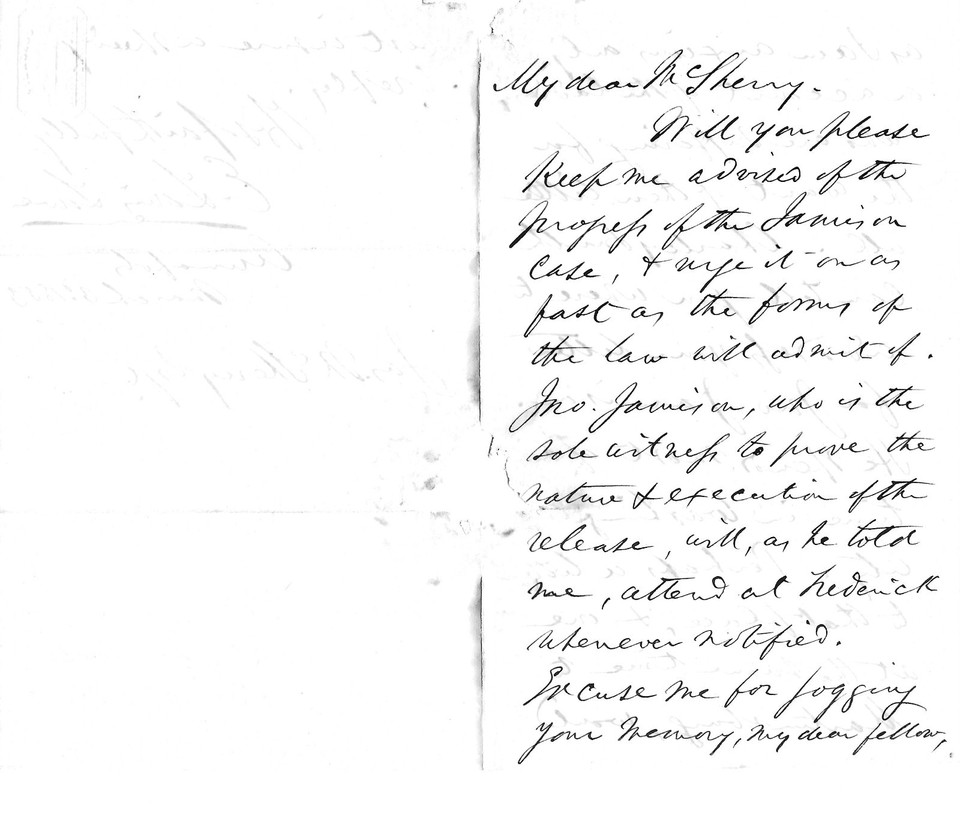 My dear McSherry.
Will you please
Keep me advised of the
progress of the Jamison
case, & urge it on as
fast as the forms of
the law will admit of.
Jno. Jamison, who is the
sole witness to prove the
nature & execution of the
release, will, as he told
me, attend at Frederick
whenever notified.
Excuse me for jogging
your memory, my dear fellow,